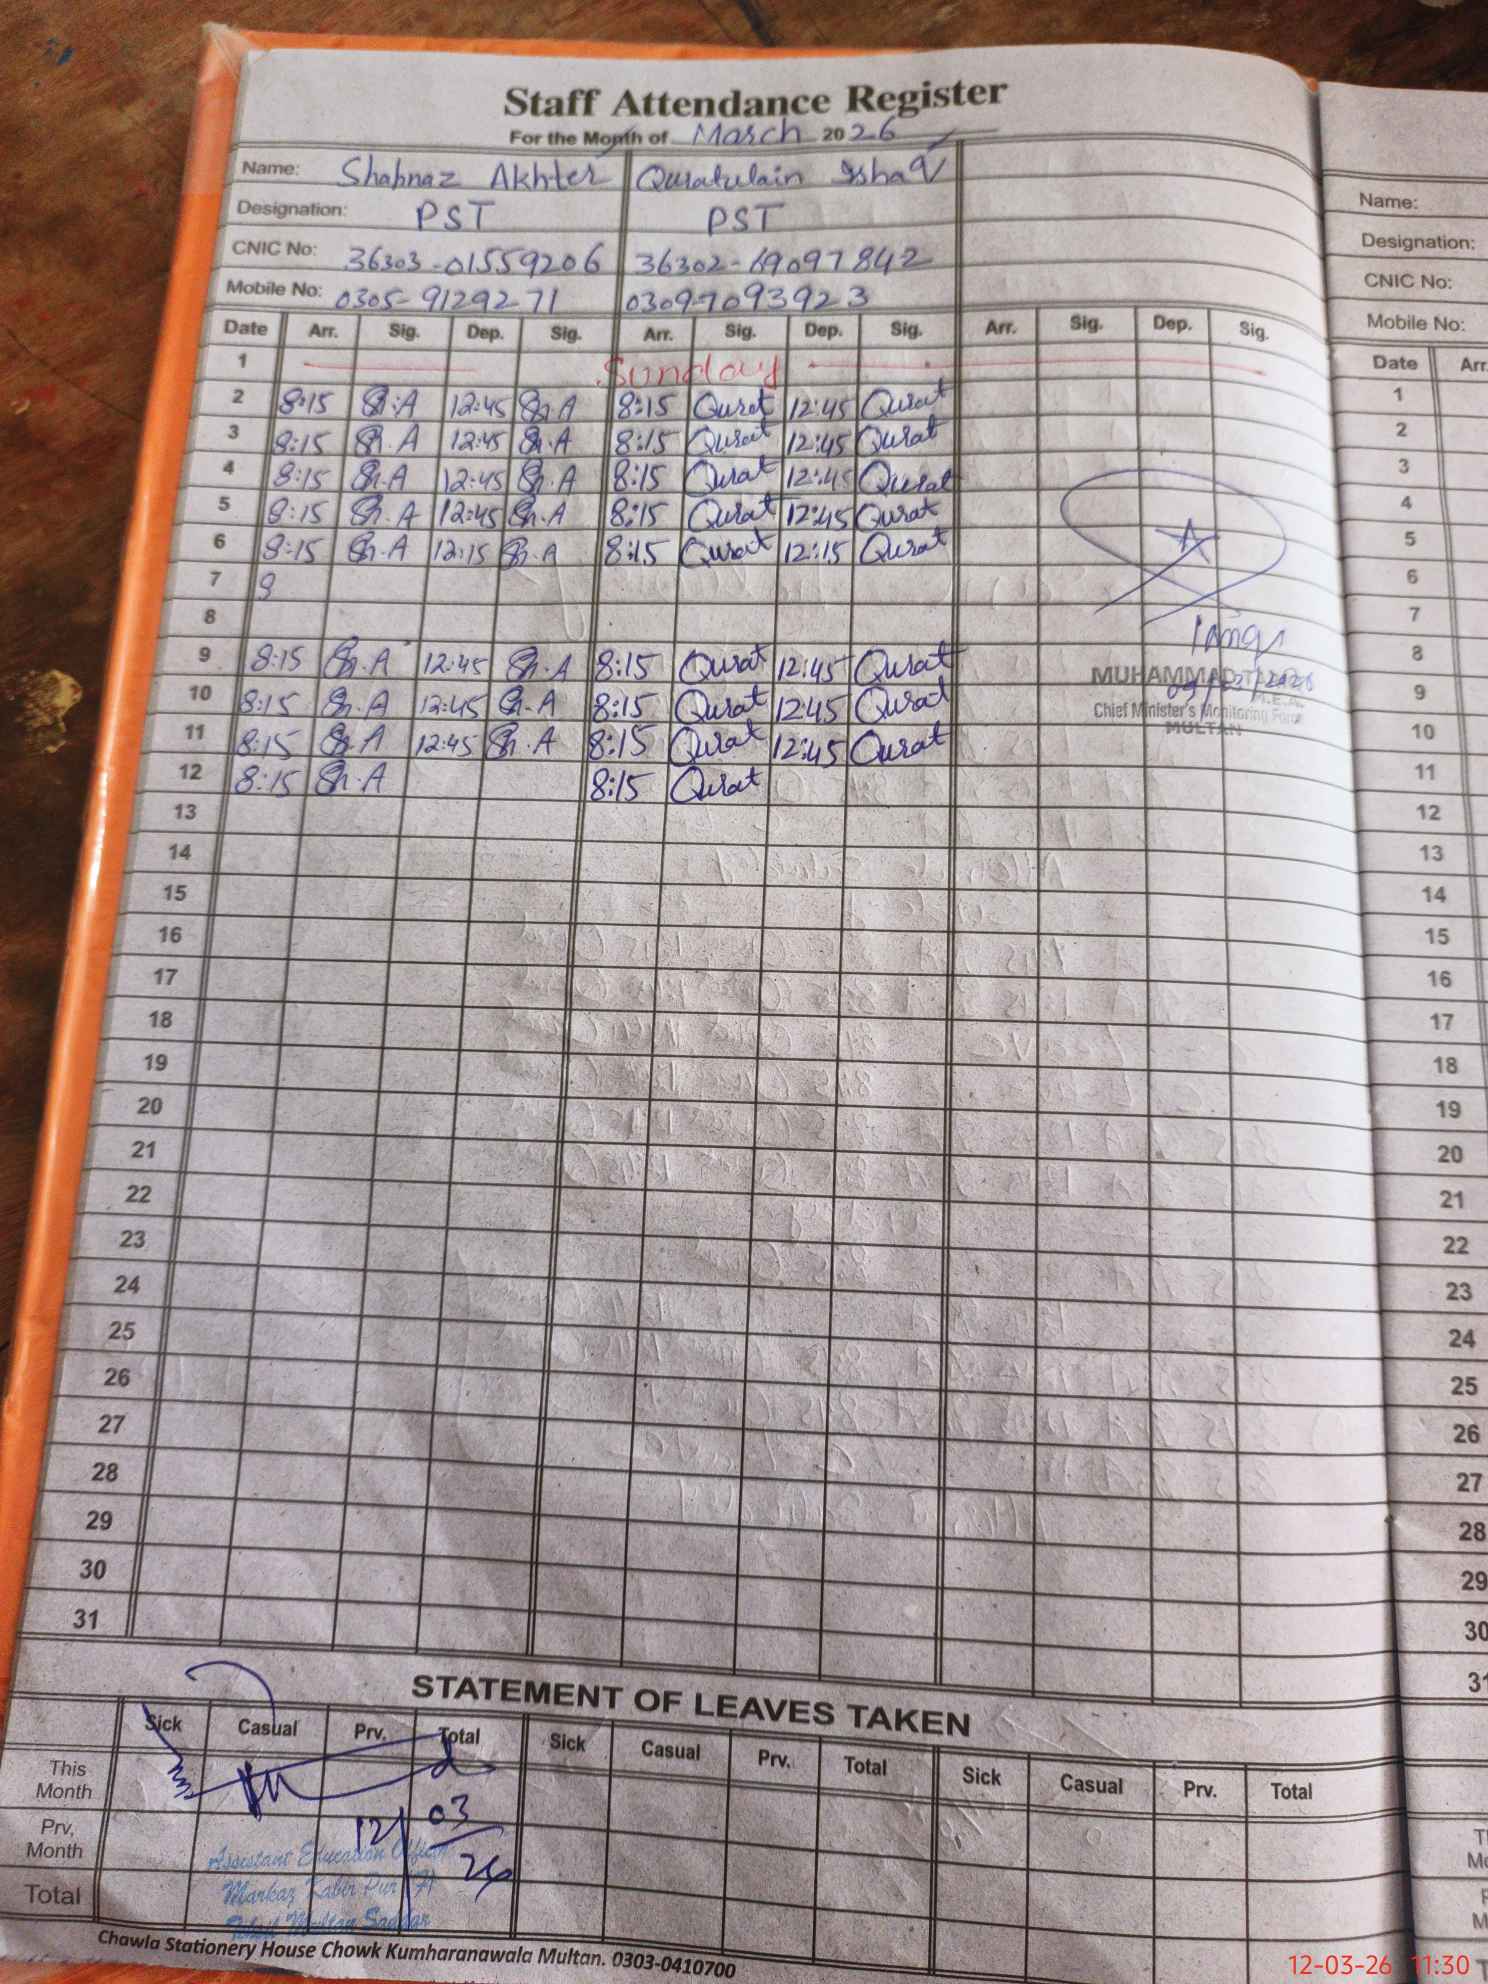 Staff Attendance Register
For the Month of March 2026
Name: Shahnaz Akhter Quratulain Ishaq
Designation: PST PST
CNIC No: 36303-01559206 36302-69097842
Mobile No: 0305-9129271 03097093923
Date Arr. Sig. Dep. Sig. Arr. Sig. Dep. Sig. Arr. Sig. Dep. Sig.
1 Sunday
2 8:15 Sh.A 12:45 Sh.A 8:15 Qurat 12:45 Qurat
3 8:15 Sh.A 12:45 Sh.A 8:15 Qurat 12:45 Qurat
4 8:15 Sh.A 12:45 Sh.A 8:15 Qurat 12:45 Qurat
5 8:15 Sh.A 12:45 Sh.A 8:15 Qurat 12:45 Qurat
6 8:15 Sh.A 12:15 Sh.A 8:15 Qurat 12:15 Qurat
7 8
8
9 8:15 Sh.A 12:45 Sh.A 8:15 Qurat 12:45 Qurat
10 8:15 Sh.A 12:45 Sh.A 8:15 Qurat 12:45 Qurat
11 8:15 Sh.A 12:45 Sh.A 8:15 Qurat 12:45 Qurat
12 8:15 Sh.A 8:15 Qurat
MUHAMMAD
Chief Minister's Monitoring Force
MULTAN
13
14
15
16
17
18
19
20
21
22
23
24
25
26
27
28
29
30
31
STATEMENT OF LEAVES TAKEN
Sick Casual Prv. Total Sick Casual Prv. Total Sick Casual Prv. Total
This Month
Prv, Month
Total
12/03/26
Assistant Education Officer
Markaz Kabir Pur (F)
Multan Saddar
Chawla Stationery House Chowk Kumharanawala Multan. 0303-0410700
Name:
Designation:
CNIC No:
Mobile No:
Date Arr
1
2
3
4
5
6
7
8
9
10
11
12
13
14
15
16
17
18
19
20
21
22
23
24
25
26
27
28
29
30
31
12-03-26 11:30